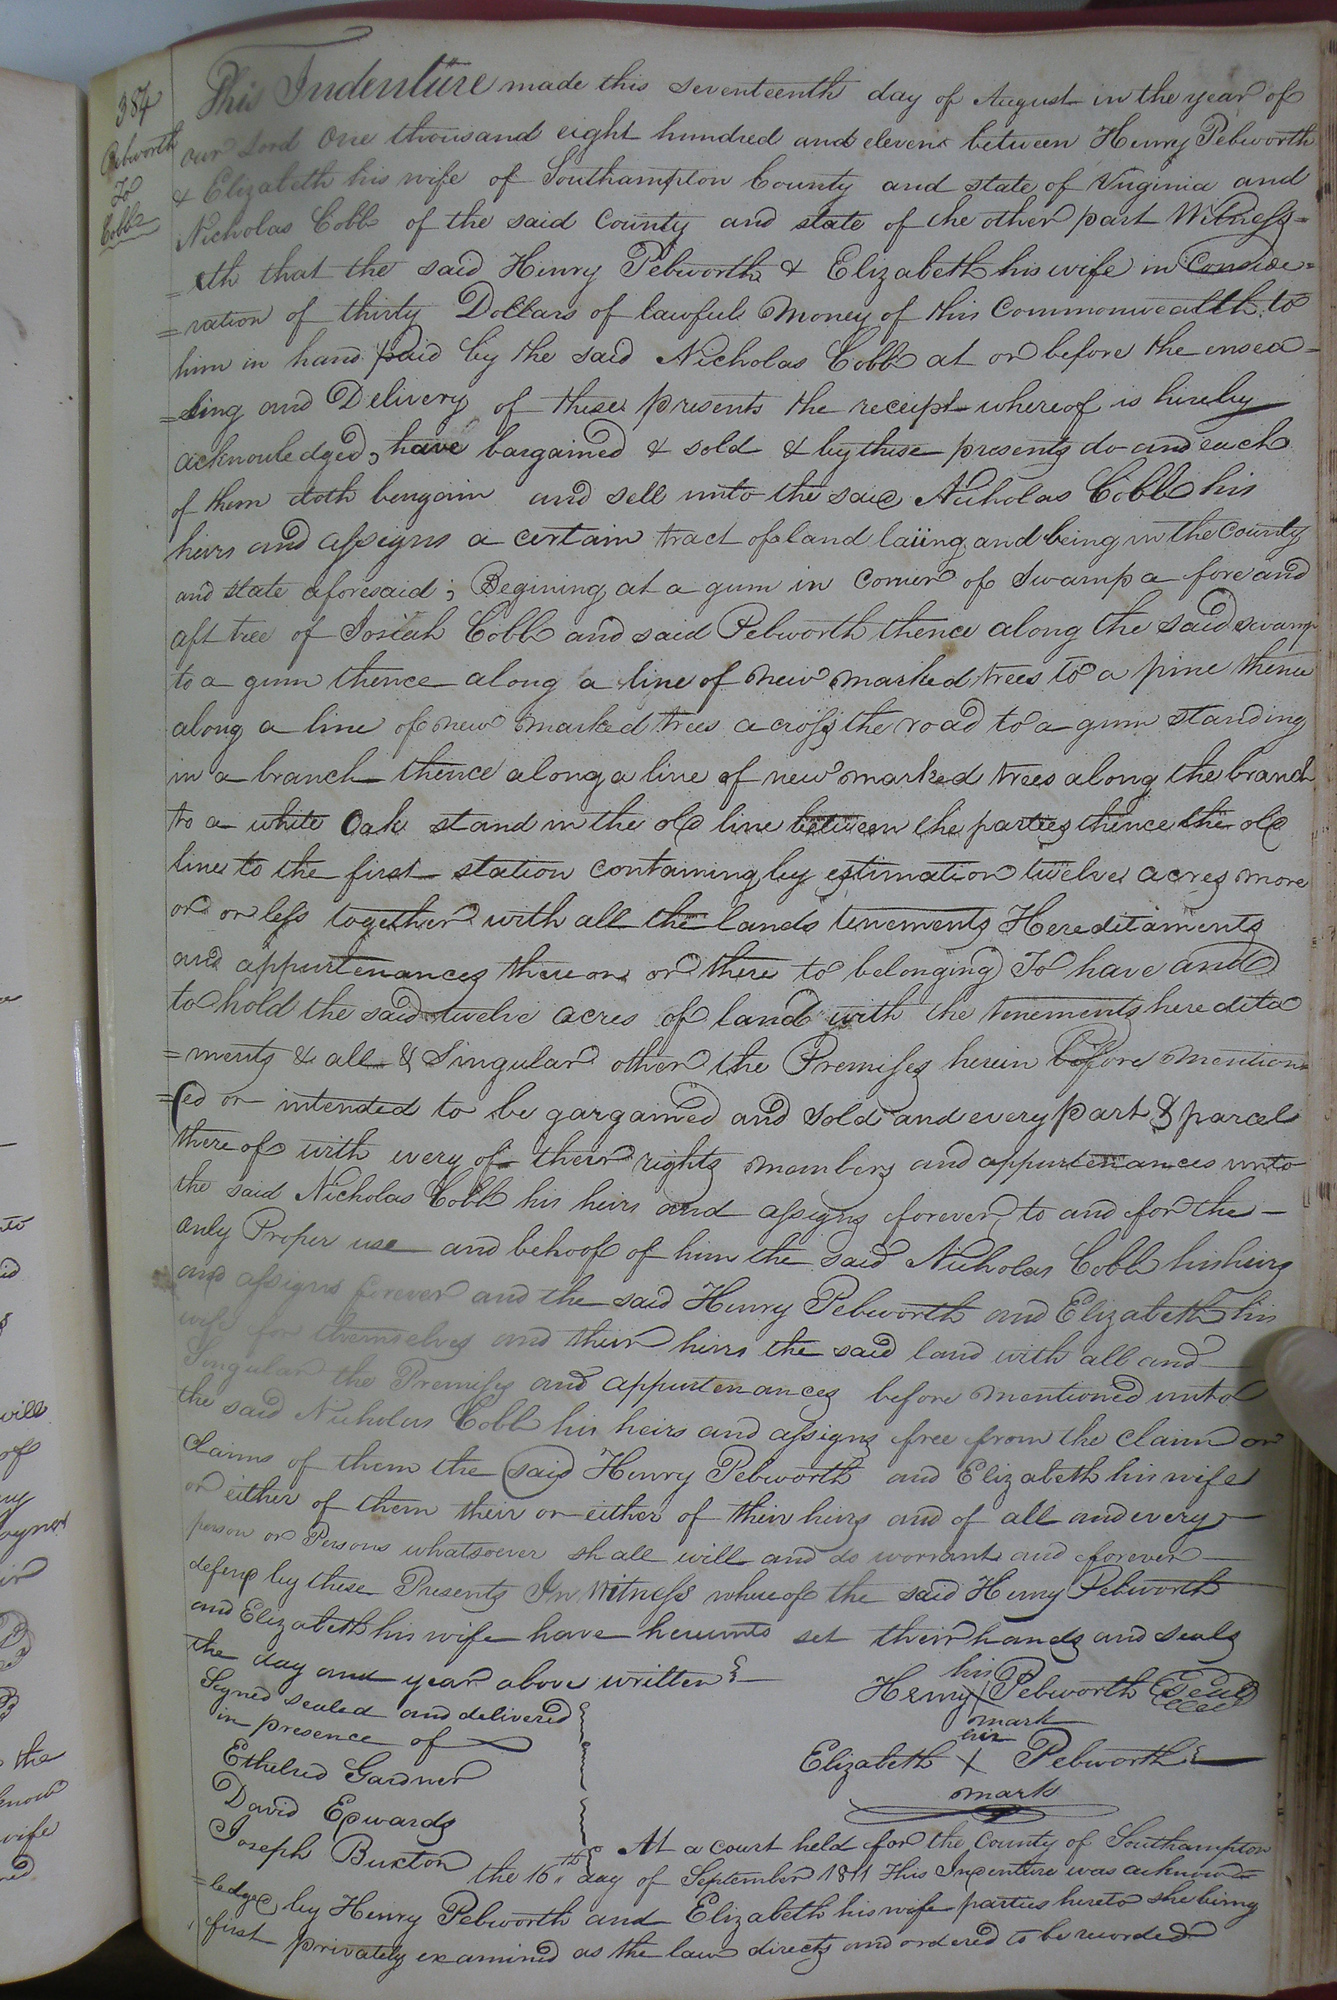 384
Pebworth
To
Cobb
This Indenture made this seventeenth day of August in the year of
our Lord One thousand eight hundred and eleven between Henry Pebworth
& Elizabeth his wife of Southampton County and state of Virginia and
Nicholas Cobb of the said County and state of the other part Witness=
=eth that the said Henry Pebworth & Elizabeth his wife in Conside=
=ration of thirty Dollars of lawful Money of this Commonwealth to
him in hand paid by the said Nicholas Cobb at or before the ensea=
=ling and Delivery of these presents the receipt whereof is hereby
acknowledged, have bargained & sold & by these presents do and each
of them doth bengain and sell unto the said Nicholas Cobb his
heirs and assigns a certain tract of land laiing and being in the County
and state aforesaid; Begining at a gum in corner of Swamp a fore and
aft tree of Josiah Cobb and said Pebworth thence along the said swamp
to a gum thence along a line of new marked trees to a pine thence
along a line of new marked trees across the road to a gum standing
in a branch thence along a line of new marked trees along the branch
to a white Oak stand in the old line between the parties thence the old
line to the first station containing by estimation twelve acres more
or or less together with all the lands tenements Hereditaments
and appurtenances there on or there to belonging To have and
to hold the said twelve acres of land with the tenements heredita
=ments & all & Singular other the Premises herein before mention=
=ed or intended to be gargained and sold and every part & parcel
there of with every of their rights members and appurtenances unto
the said Nicholas Cobb his heirs and assigns forever, to and for the
only Proper use and behoof of him the said Nicholas Cobb his heirs
and assigns forever and the said Henry Pebworth and Elizabeth his
wife for themselves and their heirs the said land with all and
Singular the Premises and appurtenances before mentioned unto
the said Nicholas Cobb his heirs and assigns free from the claim or
claims of them the said Henry Pebworth and Elizabeth his wife
or either of them their or either of their heirs and of all and every
person or Persons whatsoever shall will and do worrant and forever
defend by these Presents In Witness whereof the said Henry Pebworth
and Elizabeth his wife have hereunto set their hands and seals
the day and year above written
Signed sealed and delivered
in presence of
Ethelred Gardner
David Edwards
Joseph Buxton
his
Henry X Pebworth Seal
mark
her
Elizabeth X Pebworth
mark
At a court held for the County of Southampton
the 16th day of September 1811 This Indenture was acknow=
=ledged by Henry Pebworth and Elizabeth his wife parties hereto she being
first privately examined as the law directs and ordered to be recorded